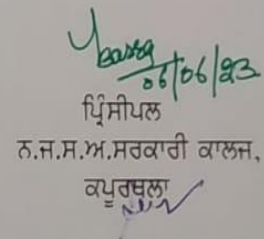 06/06/23
ਪ੍ਰਿੰਸੀਪਲ
ਨ.ਜ.ਸ.ਅ.ਸਰਕਾਰੀ ਕਾਲਜ,
ਕਪੂਰਥਲਾ